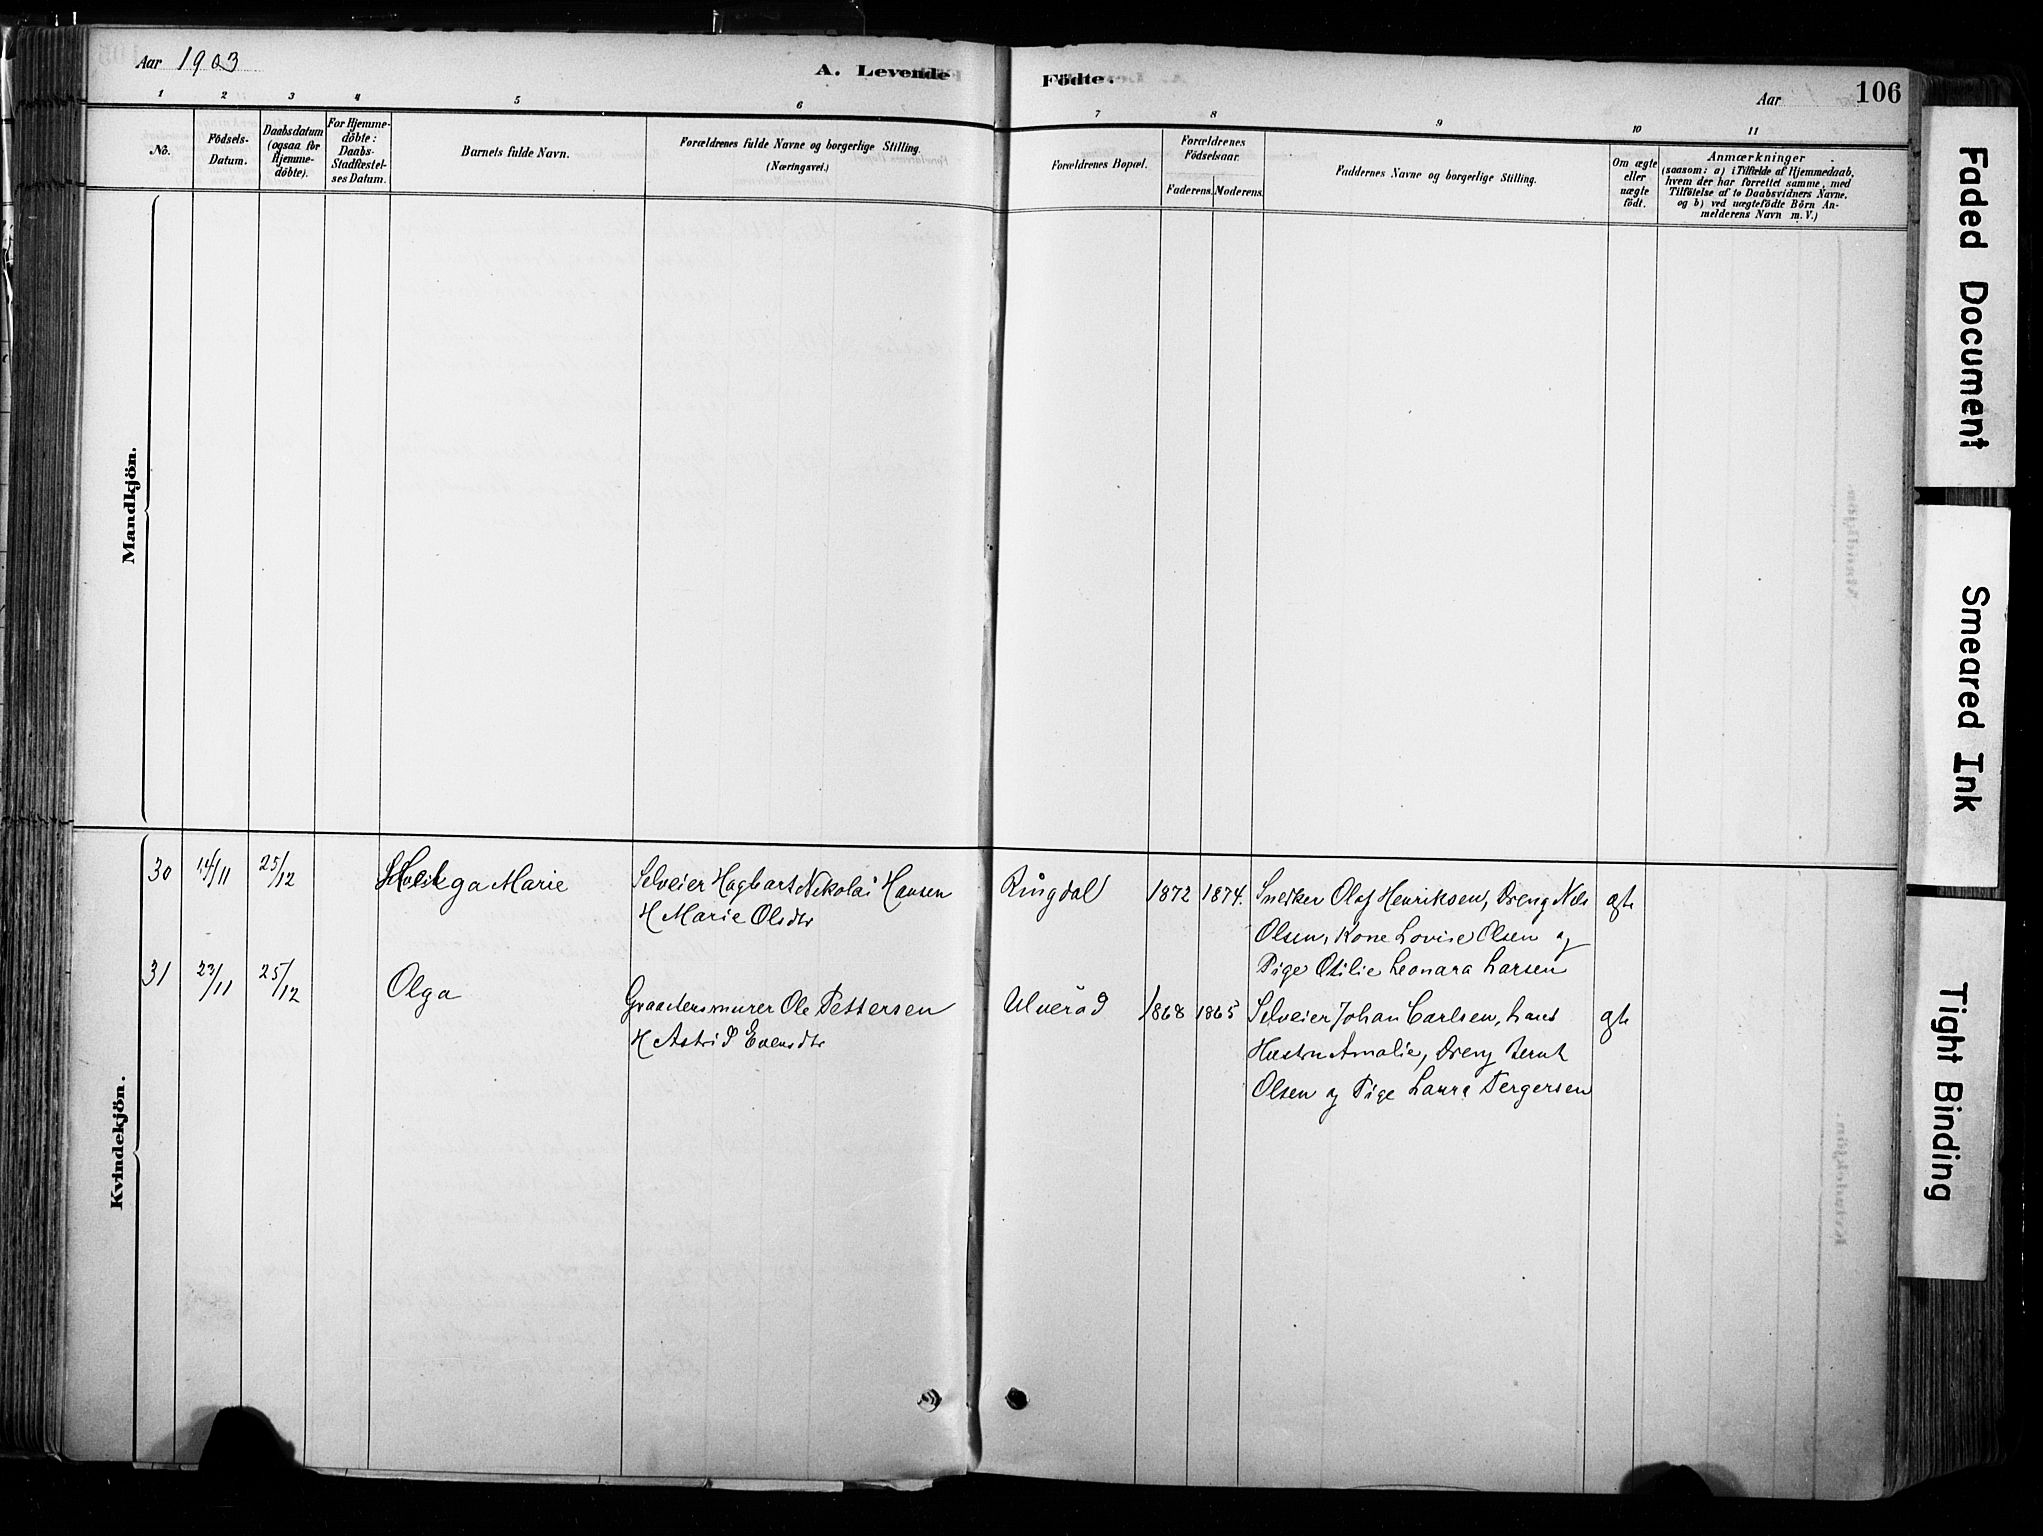 Aar 1903
A. Levende Födte.
Aar
106
1 2 3 4 5 6 7 8 9 10 11
No.
Födsels-
Datum.
Daabsdatum
(ogsaa for
Hjemme-
döbte).
For Hjemme-
döbte:
Daabs-
Stadfæstel-
ses Datum.
Barnets fulde Navn.
Forældrenes fulde Navne og borgerlige Stilling.
(Næringsvei.)
Forældrenes Bopæl.
Forældrenes
Födselsaar.
Faderens. Moderens.
Faddernes Navne og borgerlige Stilling.
Om ægte
eller
uægte
födt.
Anmærkninger
(saasom: a) i Tilfælde af Hjemmedaab,
hvem der har forrettet samme, med
Tilföielse af to Daabsvidners Navne,
og b) ved uægtefödte Börn An-
melderens Navn m. V.)
Mandkjön.
Kvindekjön.
30 14/11 25/12 Helga Marie Selveier Hagbart Nikolai Hansen Ringdal 1872 1874. Snedker Olaf Henriksen, Dreng Nils ægte
H Marie Olsdtr Olsen, Kone Lovise Olsen og
Pige Otilie Leonara Larsen
31 23/11 25/12 Olga Graastensmurer Ole Pettersen Ulverød 1868 1865 Selveier Johan Carlsen, hans ægte
H Astrid Evensdtr Hustru Amalie, Dreng Bernt
Olsen og Pige Laura Tergersen
Faded Document
Smeared Ink
Tight Binding